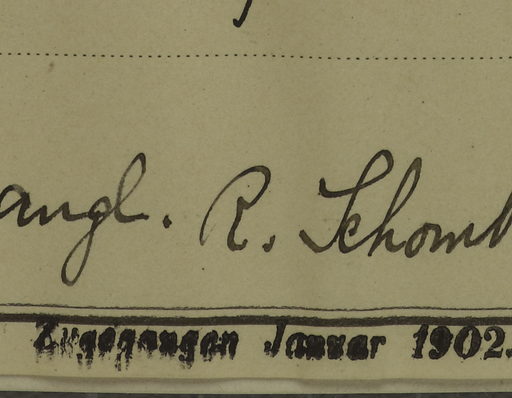 angl. R. Schomb
Zugegangen Januar 1902.